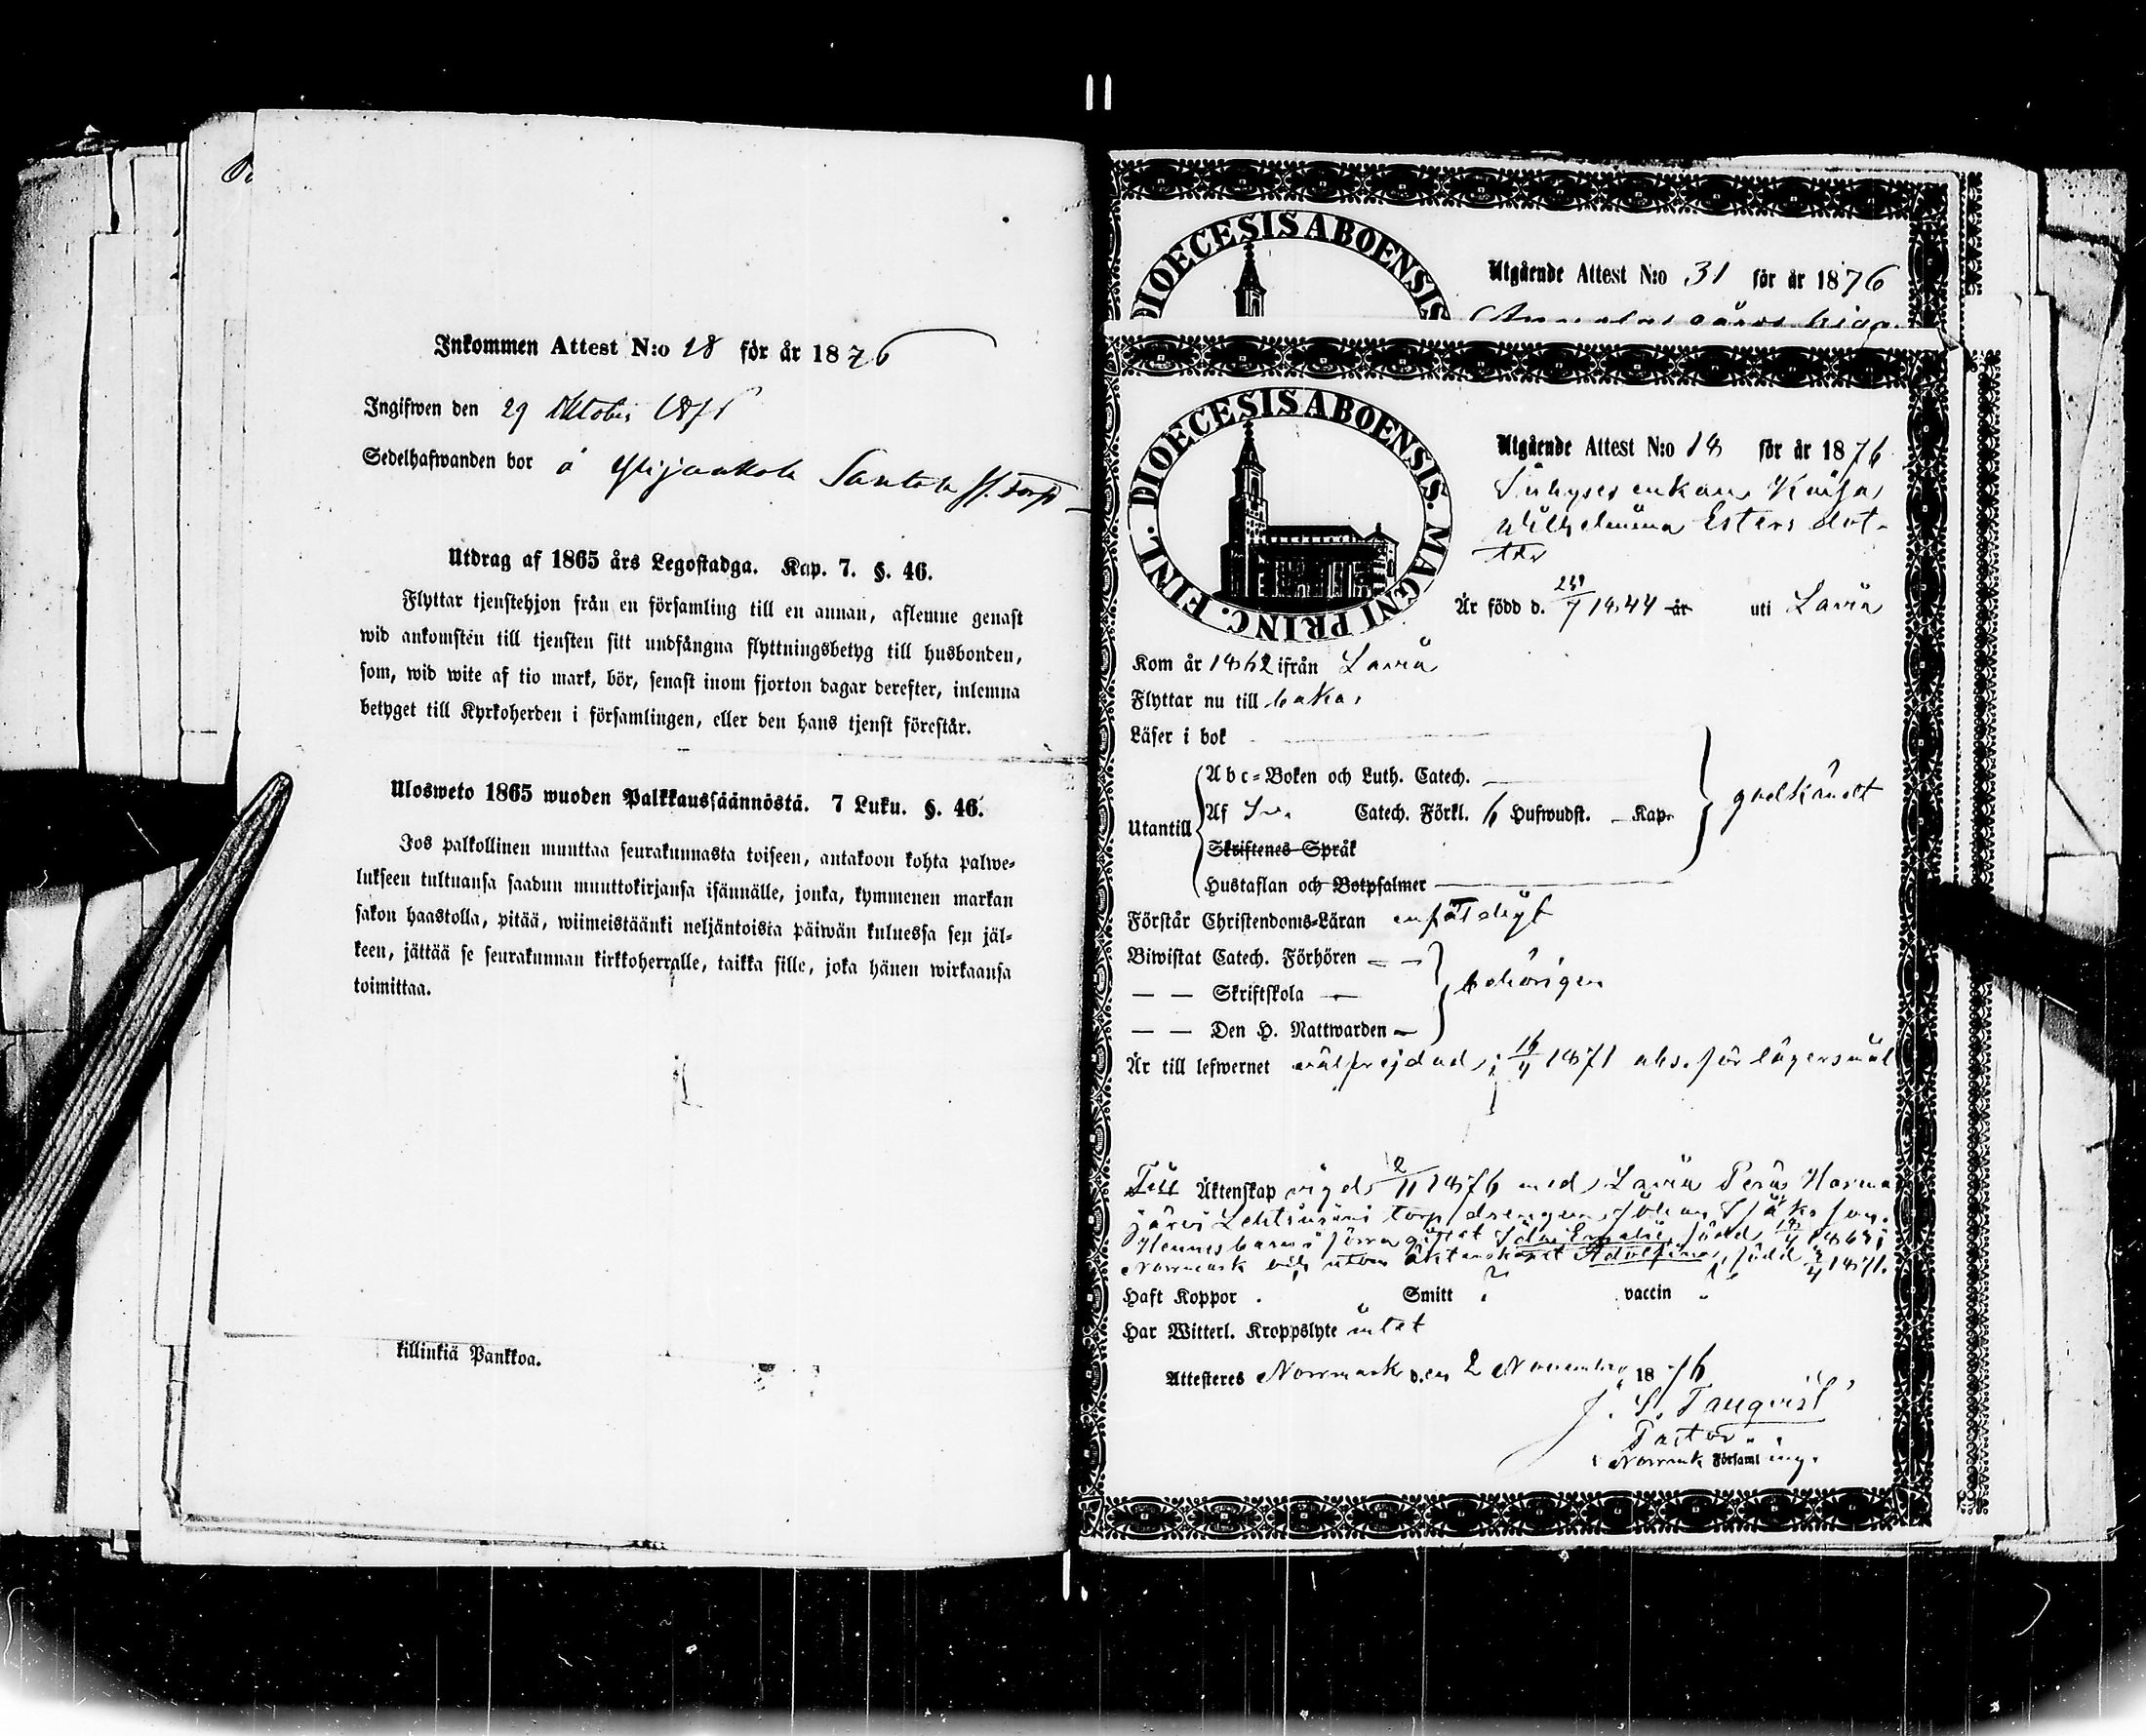 Inkommen Attest N:o 28 för år 1876
Ingifwen den 29 Oktober 1876
Sedelhafwanden bor å Ylijaakola Santala torp
Utdrag af 1865 års Legostadga. Kap. 7. §. 46.
Flyttar tjenstehjon från en församling till en annan, aflemne genast
wid ankomsten till tjensten sitt undfångna flyttningsbetyg till husbonden,
som, wid wite af tio mark, bör, senast inom fjorton dagar derefter, inlemna
betyget till Kyrkoherden i församlingen, eller den hans tjenst förestår.
Ulosweto 1865 wuoden Palkkaussäännöstä. 7 Luku. §. 46.
Jos palkollinen muuttaa seurakunnasta toiseen, antakoon kohta palwe-
lukseen tultuansa saadun muuttokirjansa isännälle, jonka, kymmenen markan
sakon haastolla, pitää, wiimeistäänki neljäntoista päiwän kuluessa sen jäl-
keen, jättää se seurakunnan kirkkoherralle, taikka sille, joka hänen wirkaansa
toimittaa.
killinkiä Pankkoa.
DIOECESIS ABOENSIS
Utgående Attest N:o 31 för år 1876
DIOECESIS ABOENSIS. MAGNI PRINC. FINL.
Utgående Attest N:o 18 för år 1876
enkan Kaisa
Wilhelmina Esters dot-
ter
Är född d. 28/7 1844 år uti Lavia
Kom år 1862 ifrån Lavia
Flyttar nu till baka
Läser i bok
Abc-Boken och Luth. Catech.
Utantill Af Sv. Catech. Förkl. 6 Hufwudst. Kap. godkändt
Skriftenes Språk
Hustaflan och Botpsalmer
Förstår Christendoms-Läran enfaldigt
Biwistat Catech. Förhören
— — Skriftskola behörigen
— — Den H. Nattwarden
Är till lefwernet välfrejdad; 16/4 1871 abs. för lägersmål
Till Äktenskap vigd 2/11 1876 med Lavia Perä Harma
järvi torp drengen Johan
Hennes barn i förra giftet Ida Emalie, född 18/4 186 i
Norrmark och utom äktenskapet Adolfina, född 3/4 1871.
Haft Koppor . Smitt ? vaccin
Har Witterl. Kroppslyte intet
Attesteres Norrmark den 2 November 1876
J. S. Tanqvist
Pastor i
Norrmark Församling.